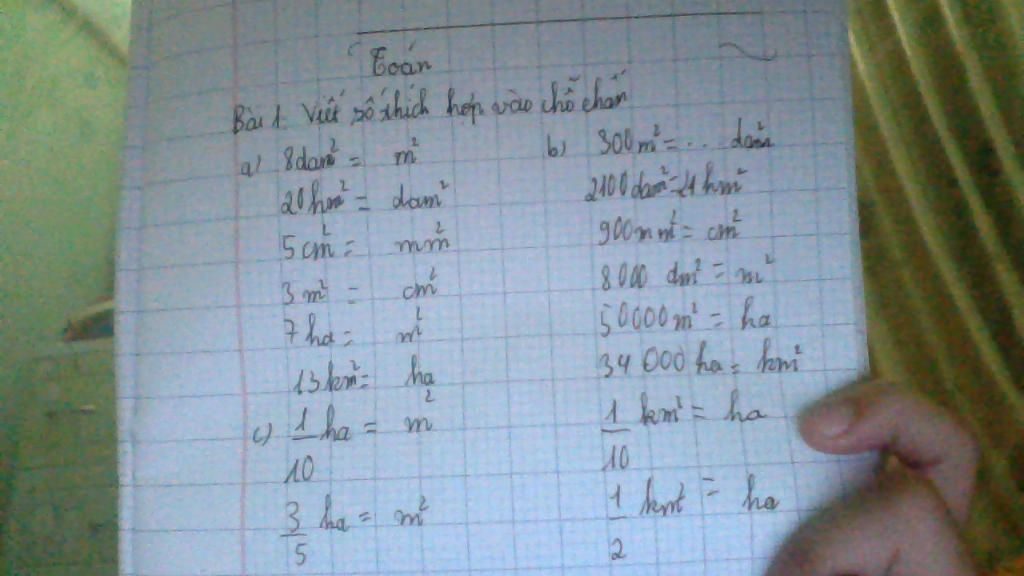 Toán
Bài 1. Viết số thích hợp vào chỗ chấm
a) 8dam² = m²
20hm² = dam²
5cm² = mm²
3m² = cm²
7ha = m²
13km² = ha
b) 300m² = .. dam²
2100dam² = 21hm²
900mm² = cm²
8000 dm² = m²
50000m² = ha
34 000 ha = km²
c) 1/10 ha = m²
1/10 km² = ha
3/5 ha = m²
1/2 km² = ha